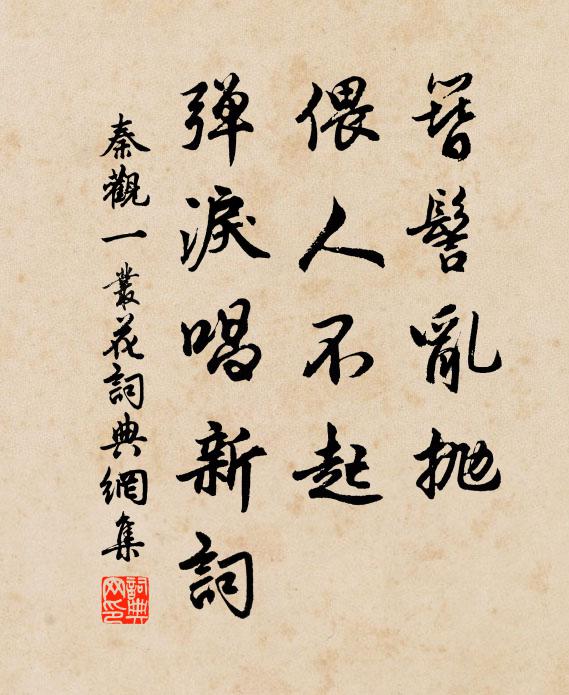 簪髻亂拋
偎人不起
彈淚唱新詞
秦觀一叢花詞典網集
詞典網印